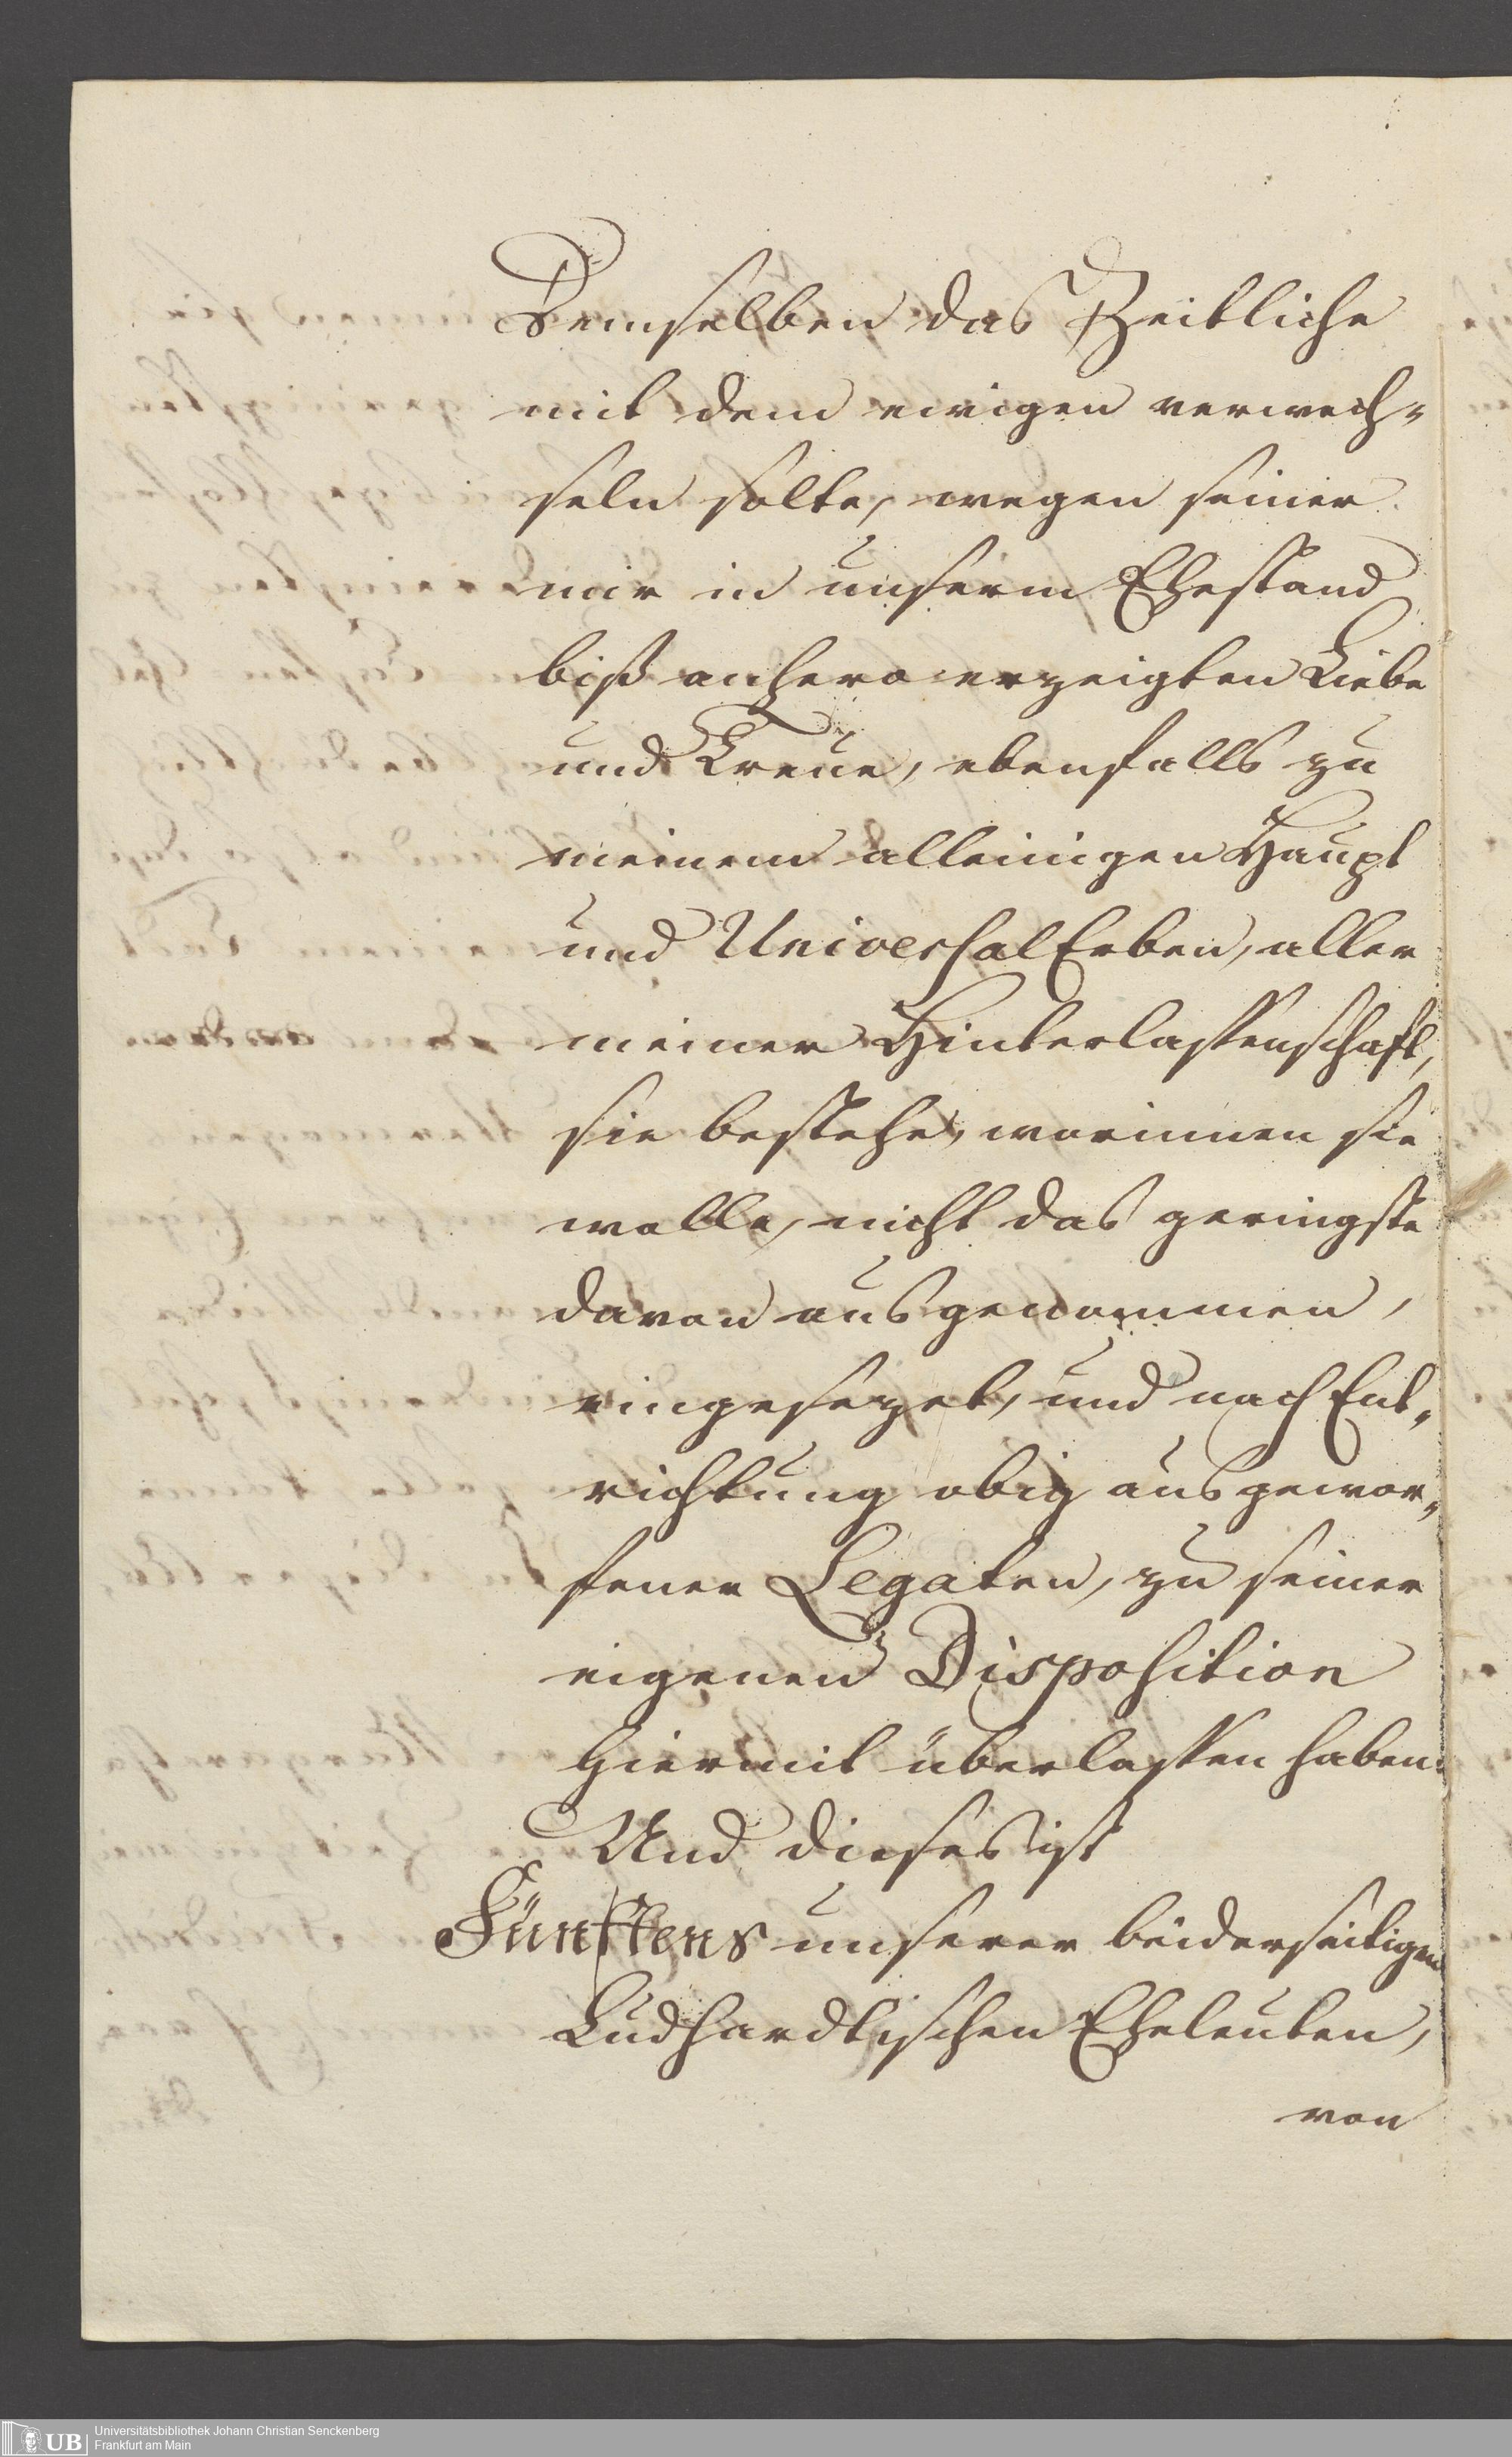 Demselben das Zeitliche
mit dem ewigen verwech-
seln solte, wegen seiner
mir in unserm Ehestand
biß anhero erzeigten Liebe
und Treue, ebenfalls zu
meinem alleinigen Haupt
und Universal Erben, aller
meiner Hinterlassenschafft,
sie bestehe, worinnen sie
wolle, nicht das geringste
davon ausgenommen,
eingesezet, und nach Ent-
richtung obig ausgewor-
fener Legaten, zu seiner
eigenen Disposition
hiermit überlassen haben.
Und dieses ist
Fünftens unserer beiderseitigen
Ludhardtischen Eheleuten,
von
UB
Universitätsbibliothek Johann Christian Senckenberg
Frankfurt am Main